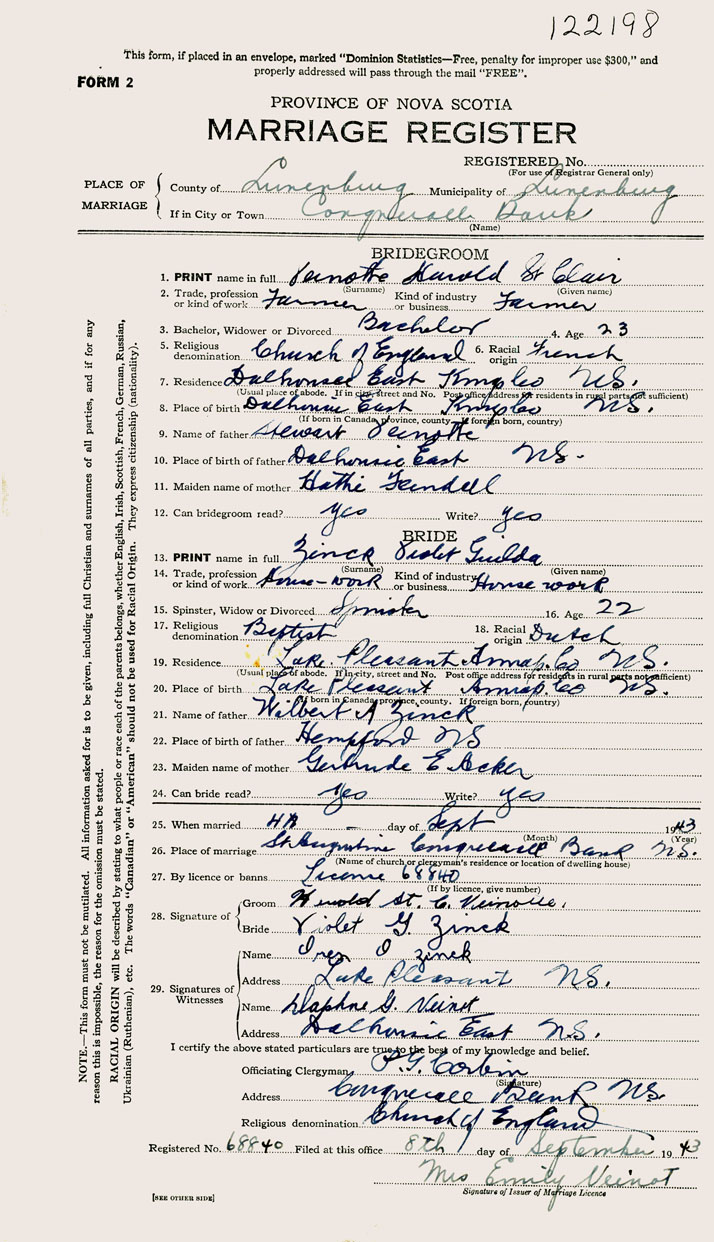 122198
This form, if placed in an envelope, marked "Dominion Statistics—Free, penalty for improper use $300," and
properly addressed will pass through the mail "FREE".
FORM 2
PROVINCE OF NOVA SCOTIA
MARRIAGE REGISTER
REGISTERED No.
(For use of Registrar General only)
PLACE OF MARRIAGE
County of Lunenburg Municipality of Lunenburg
If in City or Town Conquerall Bank
(Name)
BRIDEGROOM
1. PRINT name in full Veinotte Harold St Clair
(Surname) (Given name)
2. Trade, profession or kind of work Farmer Kind of industry or business Farmer
3. Bachelor, Widower or Divorced Bachelor 4. Age 23
5. Religious denomination Church of England 6. Racial origin French
7. Residence Dalhousie East Kings Co NS.
(Usual place of abode. If in city, street and No. Post office address for residents in rural parts not sufficient)
8. Place of birth Dalhousie East Kings Co NS.
(If born in Canada, province, county. If foreign born, country)
9. Name of father Stewart Veinotte
10. Place of birth of father Dalhousie East NS.
11. Maiden name of mother Hattie
12. Can bridegroom read? yes Write? yes
BRIDE
13. PRINT name in full Zinck Violet Guilda
(Surname) (Given name)
14. Trade, profession or kind of work House-work Kind of industry or business House work
15. Spinster, Widow or Divorced Spinster 16. Age 22
17. Religious denomination Baptist 18. Racial origin Dutch
19. Residence Lake Pleasant Annap. Co NS.
(Usual place of abode. If in city, street and No. Post office address for residents in rural parts not sufficient)
20. Place of birth Lake Pleasant Annap. Co NS.
(If born in Canada, province, county. If foreign born, country)
21. Name of father Wilbert A Zinck
22. Place of birth of father Hempford NS
23. Maiden name of mother Gertrude E Acker
24. Can bride read? Yes Write? yes
25. When married 4th day of Sept 1943
(Month) (Year)
26. Place of marriage St Augustine Conquerall Bank NS.
(Name of church or clergyman's residence or location of dwelling house)
27. By licence or banns License 68840
(If by licence, give number)
28. Signature of
Groom Harold St. C. Veinotte.
Bride Violet G. Zinck
29. Signatures of Witnesses
Name O Zinck
Address Lake Pleasant NS.
Name Daphne G. Veinot
Address Dalhousie East N.S.
I certify the above stated particulars are true to the best of my knowledge and belief.
Officiating Clergyman Corbin
(Signature)
Address Conquerall Bank NS.
Religious denomination Church of England
Registered No. 68840 Filed at this office 8th day of September 1943
Mrs Emily Veinot
Signature of Issuer of Marriage Licence
[SEE OTHER SIDE]
NOTE.—This form must not be mutilated. All information asked for is to be given, including full Christian and surnames of all parties, and if for any
reason this is impossible, the reason for the omission must be stated.
RACIAL ORIGIN will be described by stating to what people or race each of the parents belongs, whether English, Irish, Scottish, French, German, Russian,
Ukrainian (Ruthenian), etc. The words "Canadian" or "American" should not be used for Racial Origin. They express citizenship (nationality).